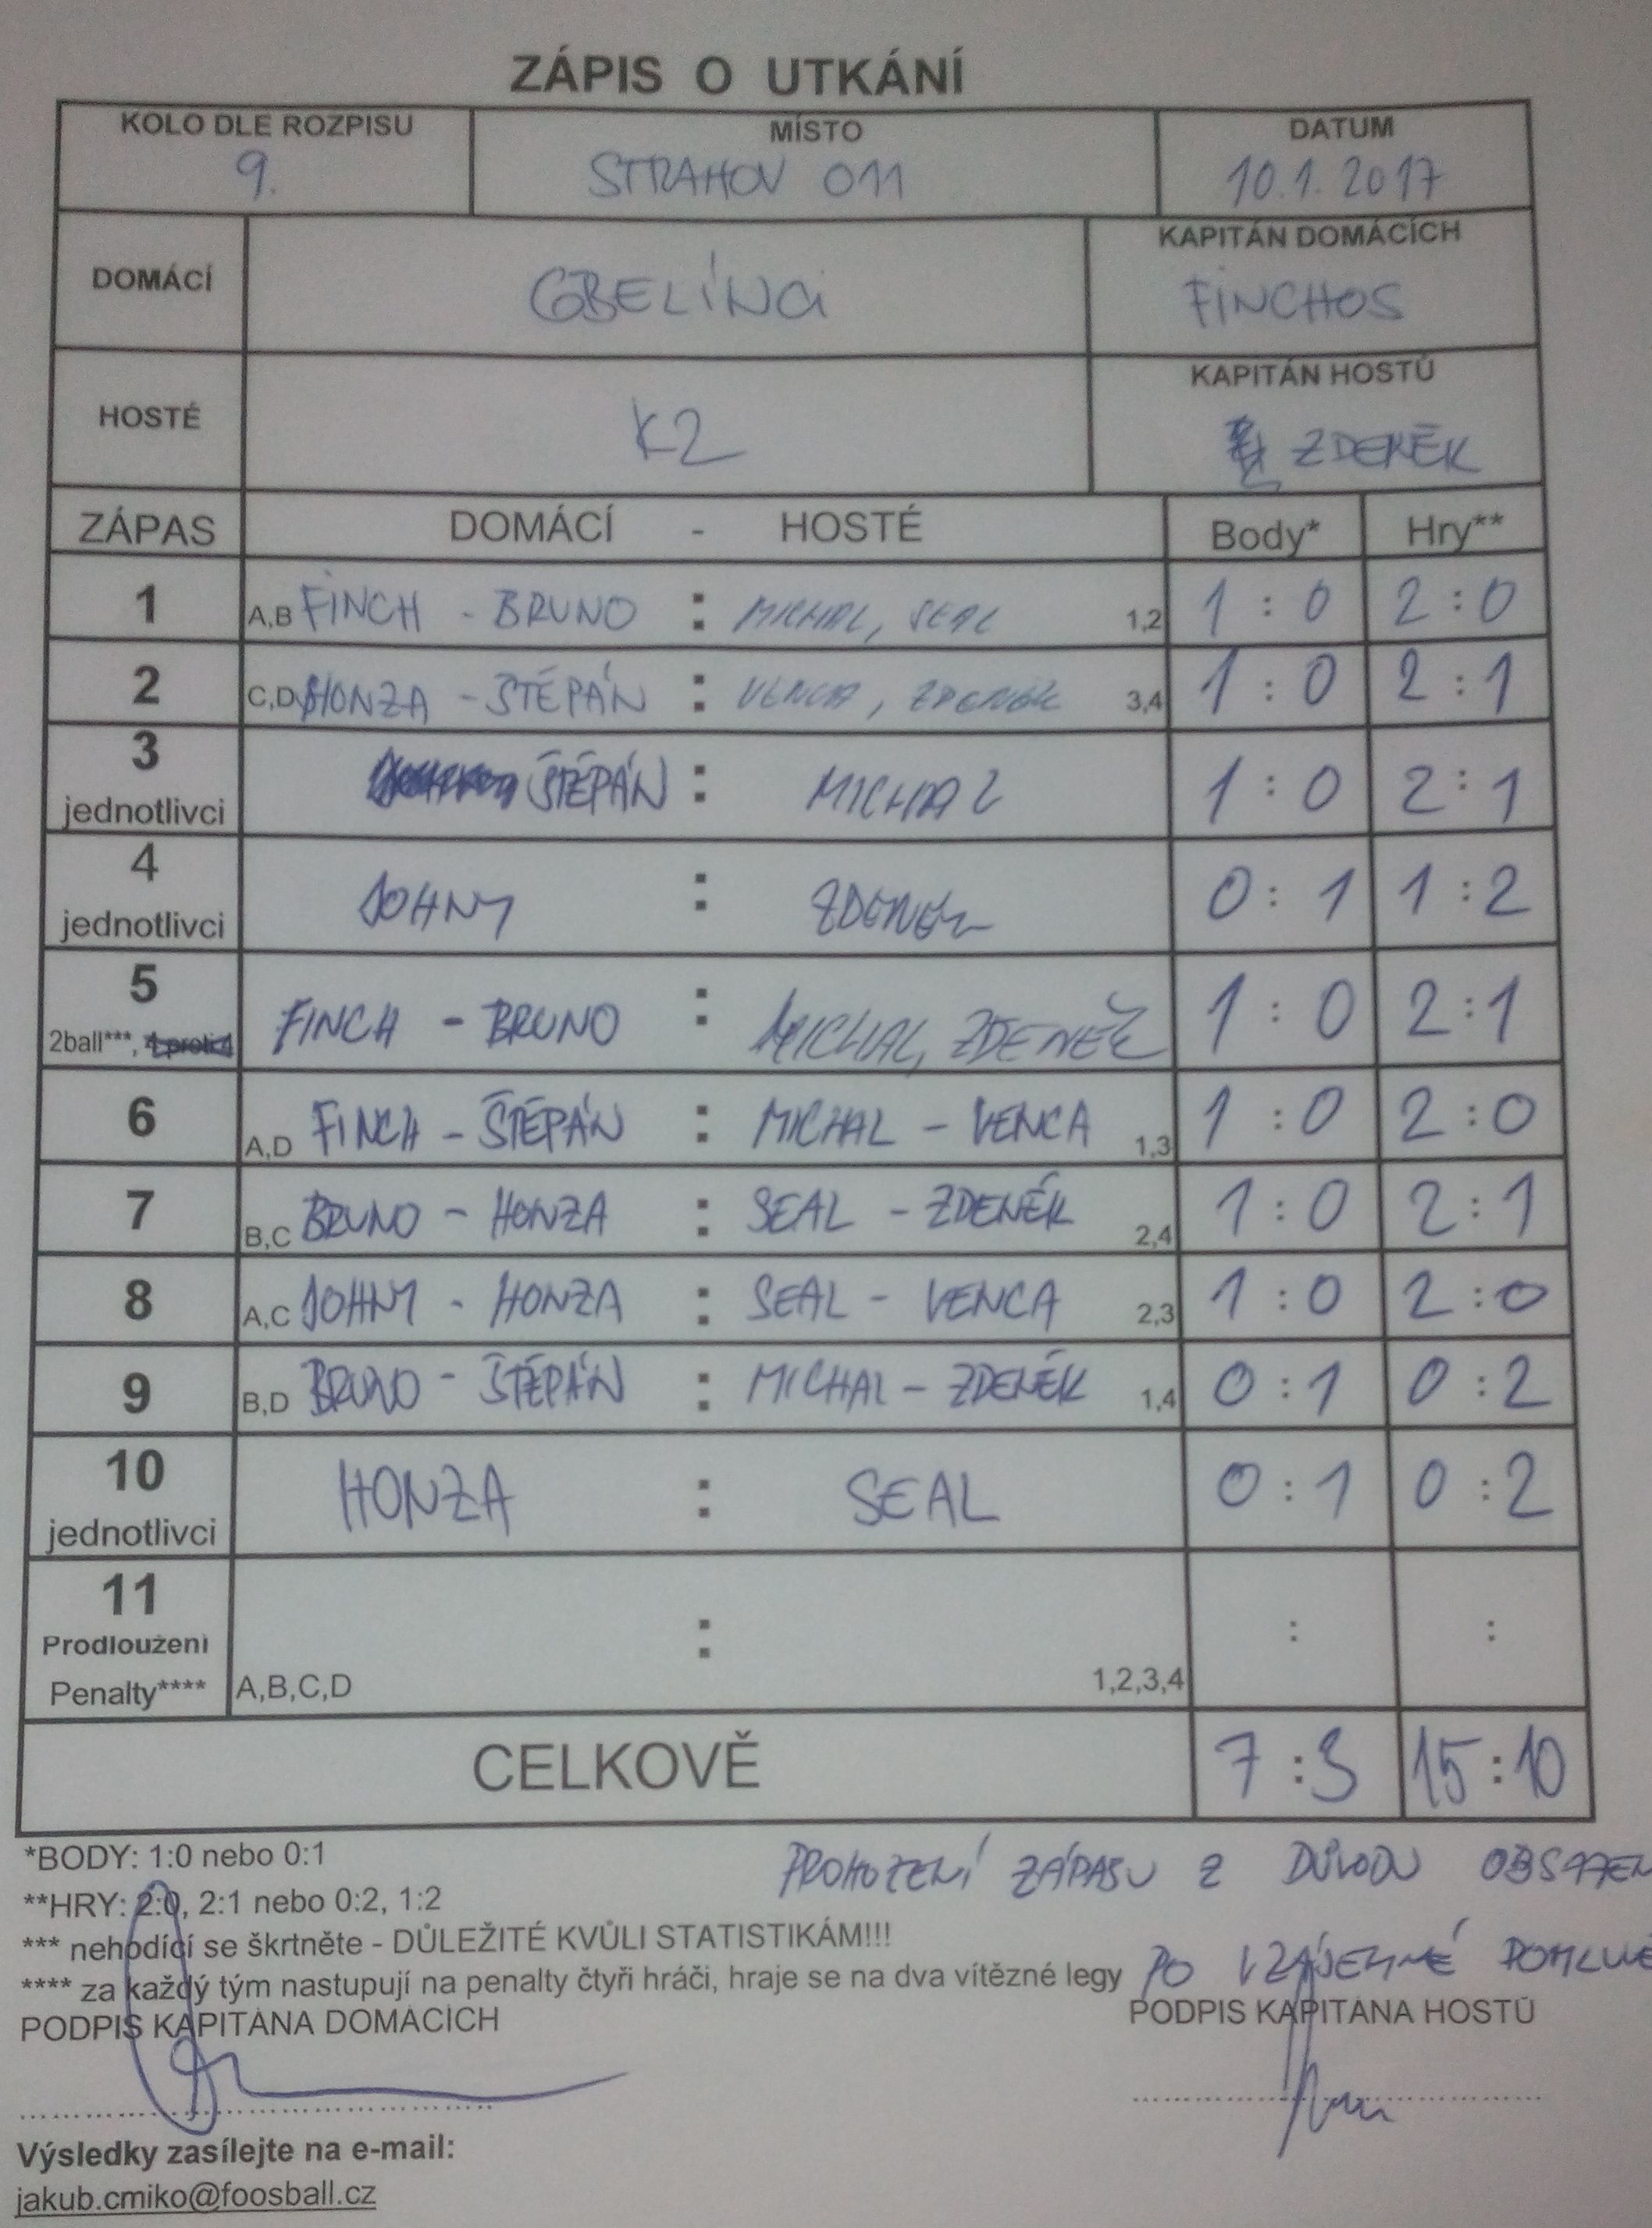 ZÁPIS O UTKÁNÍ
KOLO DLE ROZPISU MÍSTO DATUM
9. STRAHOV 011 10.1.2017
DOMÁCÍ GBELÍNG KAPITÁN DOMÁCÍCH
FINCHOS
HOSTÉ K2 KAPITÁN HOSTŮ
ZDENĚK
ZÁPAS DOMÁCÍ - HOSTÉ Body* Hry**
1 A,B FINCH - BRUNO : MICHAL, SEAL 1,2 1 : 0 2 : 0
2 C,D HONZA - ŠTĚPÁN : VENCA, ZDENĚK 3,4 1 : 0 2 : 1
3
jednotlivci ŠTĚPÁN : MICHAL 1 : 0 2 : 1
4
jednotlivci JOHNY : ZDENEK 0 : 1 1 : 2
5
2ball***, 4 proti 4 FINCH - BRUNO : MICHAL, ZDENĚK 1 : 0 2 : 1
6 A,D FINCH - ŠTĚPÁN : MICHAL - VENCA 1,3 1 : 0 2 : 0
7 B,C BRUNO - HONZA : SEAL - ZDENĚK 2,4 1 : 0 2 : 1
8 A,C JOHNY - HONZA : SEAL - VENCA 2,3 1 : 0 2 : 0
9 B,D BRUNO - ŠTĚPÁN : MICHAL - ZDENĚK 1,4 0 : 1 0 : 2
10
jednotlivci HONZA : SEAL 0 : 1 0 : 2
11
Prodloužení : : :
Penalty**** A,B,C,D 1,2,3,4
CELKOVĚ 7 : 3 15 : 10
*BODY: 1:0 nebo 0:1
PROHOZENÍ ZÁPASU Z DŮVODU
**HRY: 2:0, 2:1 nebo 0:2, 1:2
*** nehodící se škrtněte - DŮLEŽITÉ KVŮLI STATISTIKÁM!!!
**** za každý tým nastupují na penalty čtyři hráči, hraje se na dva vítězné legy
PO VZÁJEMNÉ
PODPIS KAPITÁNA DOMÁCÍCH PODPIS KAPITÁNA HOSTŮ
Výsledky zasílejte na e-mail:
jakub.cmiko@foosball.cz